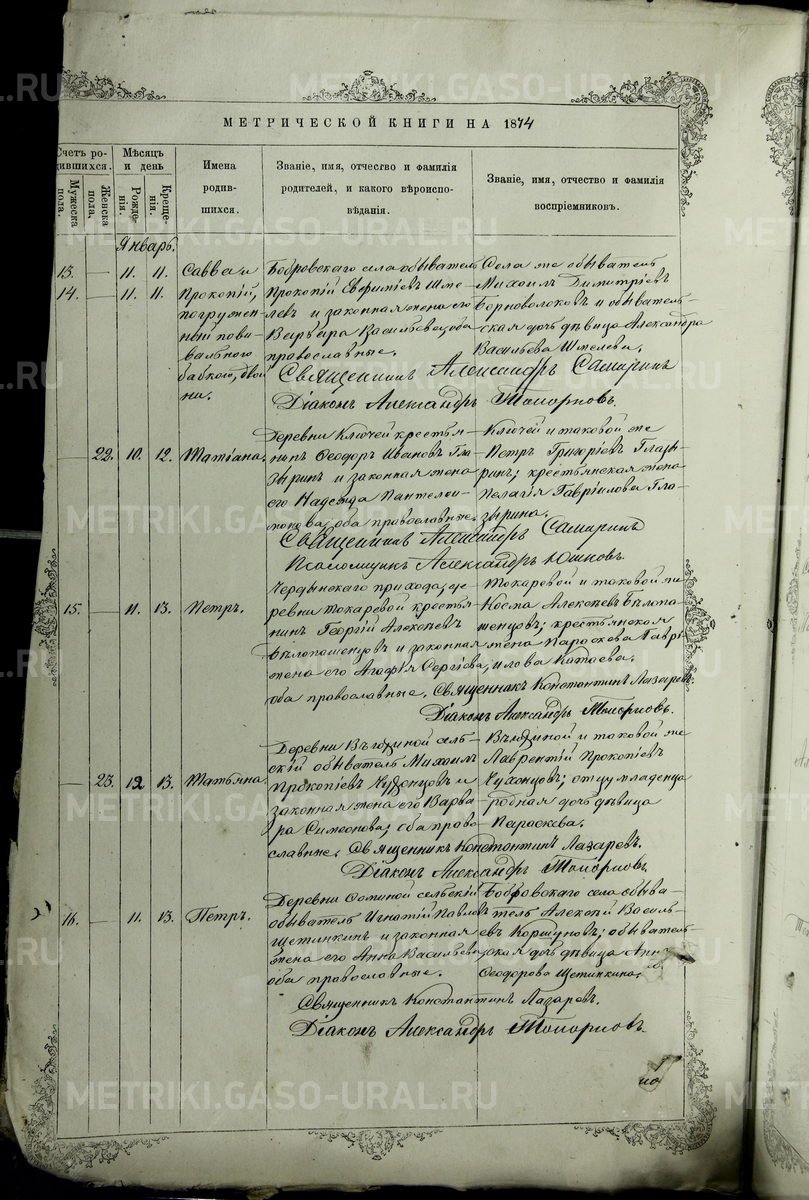 МЕТРИЧЕСКОЙ КНИГИ НА 1874
Счетъ ро-
дившихся.
Мужеска
пола.
Женска
пола.
Мѣсяцъ
и день
Рожде-
нія.
Креще-
нія.
Имена
родив-
шихся.
Званіе, имя, отчество и фамилія
родителей, и какого вѣроиспо-
вѣданія.
Званіе, имя, отчество и фамилія
воспріемниковъ.
Январь.
13. — 11. 11.
14. — 11. 11.
Савва и
Прокопій,
погружен-
ный пови-
вальною
бабкою, двой
ни.
Бобровскаго села обыватель
Прокопій Евфиміевъ Шме-
левъ и законная жена его
Варвара Васильева, оба
православные.
Села же обыватель
Михаилъ Димитріевъ
Борноволоковъ и обыватель-
ская дочь дѣвица Александра
Васильева Шмелева.
Священникъ Александръ Самаринъ
Діаконъ Александръ Топорковъ.
— 22. 10. 12. Татіана.
Деревни Ключей крестья-
нинъ Ѳеодоръ Ивановъ Гла-
зыринъ и законная жена
его Надежда Пантелеи-
монова, оба православные.
Ключей и таковой же
Петръ Григоріевъ Глазы-
ринъ; крестьянская жена
Пелагія Гавріилова Гла-
зырина.
Священникъ Александръ Самаринъ
Псаломщикъ Александръ Юшковъ.
15. — 11. 13. Петръ.
прихода, де-
ревни Токаревой крестья-
нинъ Георгій Алексѣевъ
Бѣлопашенцовъ и законная
жена его Агафія Сергіева,
оба православные.
Токаревой и таковой же
Косма Алексѣевъ Бѣлопа-
шенцовъ; крестьянская
жена Параскева Гаврі-
илова
Священникъ Константинъ Лазаревъ.
Діаконъ Александръ Топорковъ.
— 23. 12 13. Татьяна
Деревни сель-
скій обыватель Михаилъ
Прокопіевъ и
законная жена его Варва-
ра Симеонова; оба право-
славные.
и таковой же
Лаврентій Прокопіевъ
отцу младенца
родная дочь дѣвица
Параскева.
Священникъ Константинъ Лазаревъ.
Діаконъ Александръ Топорковъ.
16. — 11. 13. Петръ.
Деревни сельскій
обыватель Игнатій Павловъ
Щетинкинъ и законная
жена его Анна Васильева,
оба православные.
Бобровскаго села обыва-
тель Алексѣй Василь-
евъ Коршуновъ; обыватель-
ская дочь дѣвица Анна
Ѳеодорова Щетинкина.
Священникъ Константинъ Лазаревъ.
Діаконъ Александръ Топорковъ.
METRIKI.GASO-URAL.RU